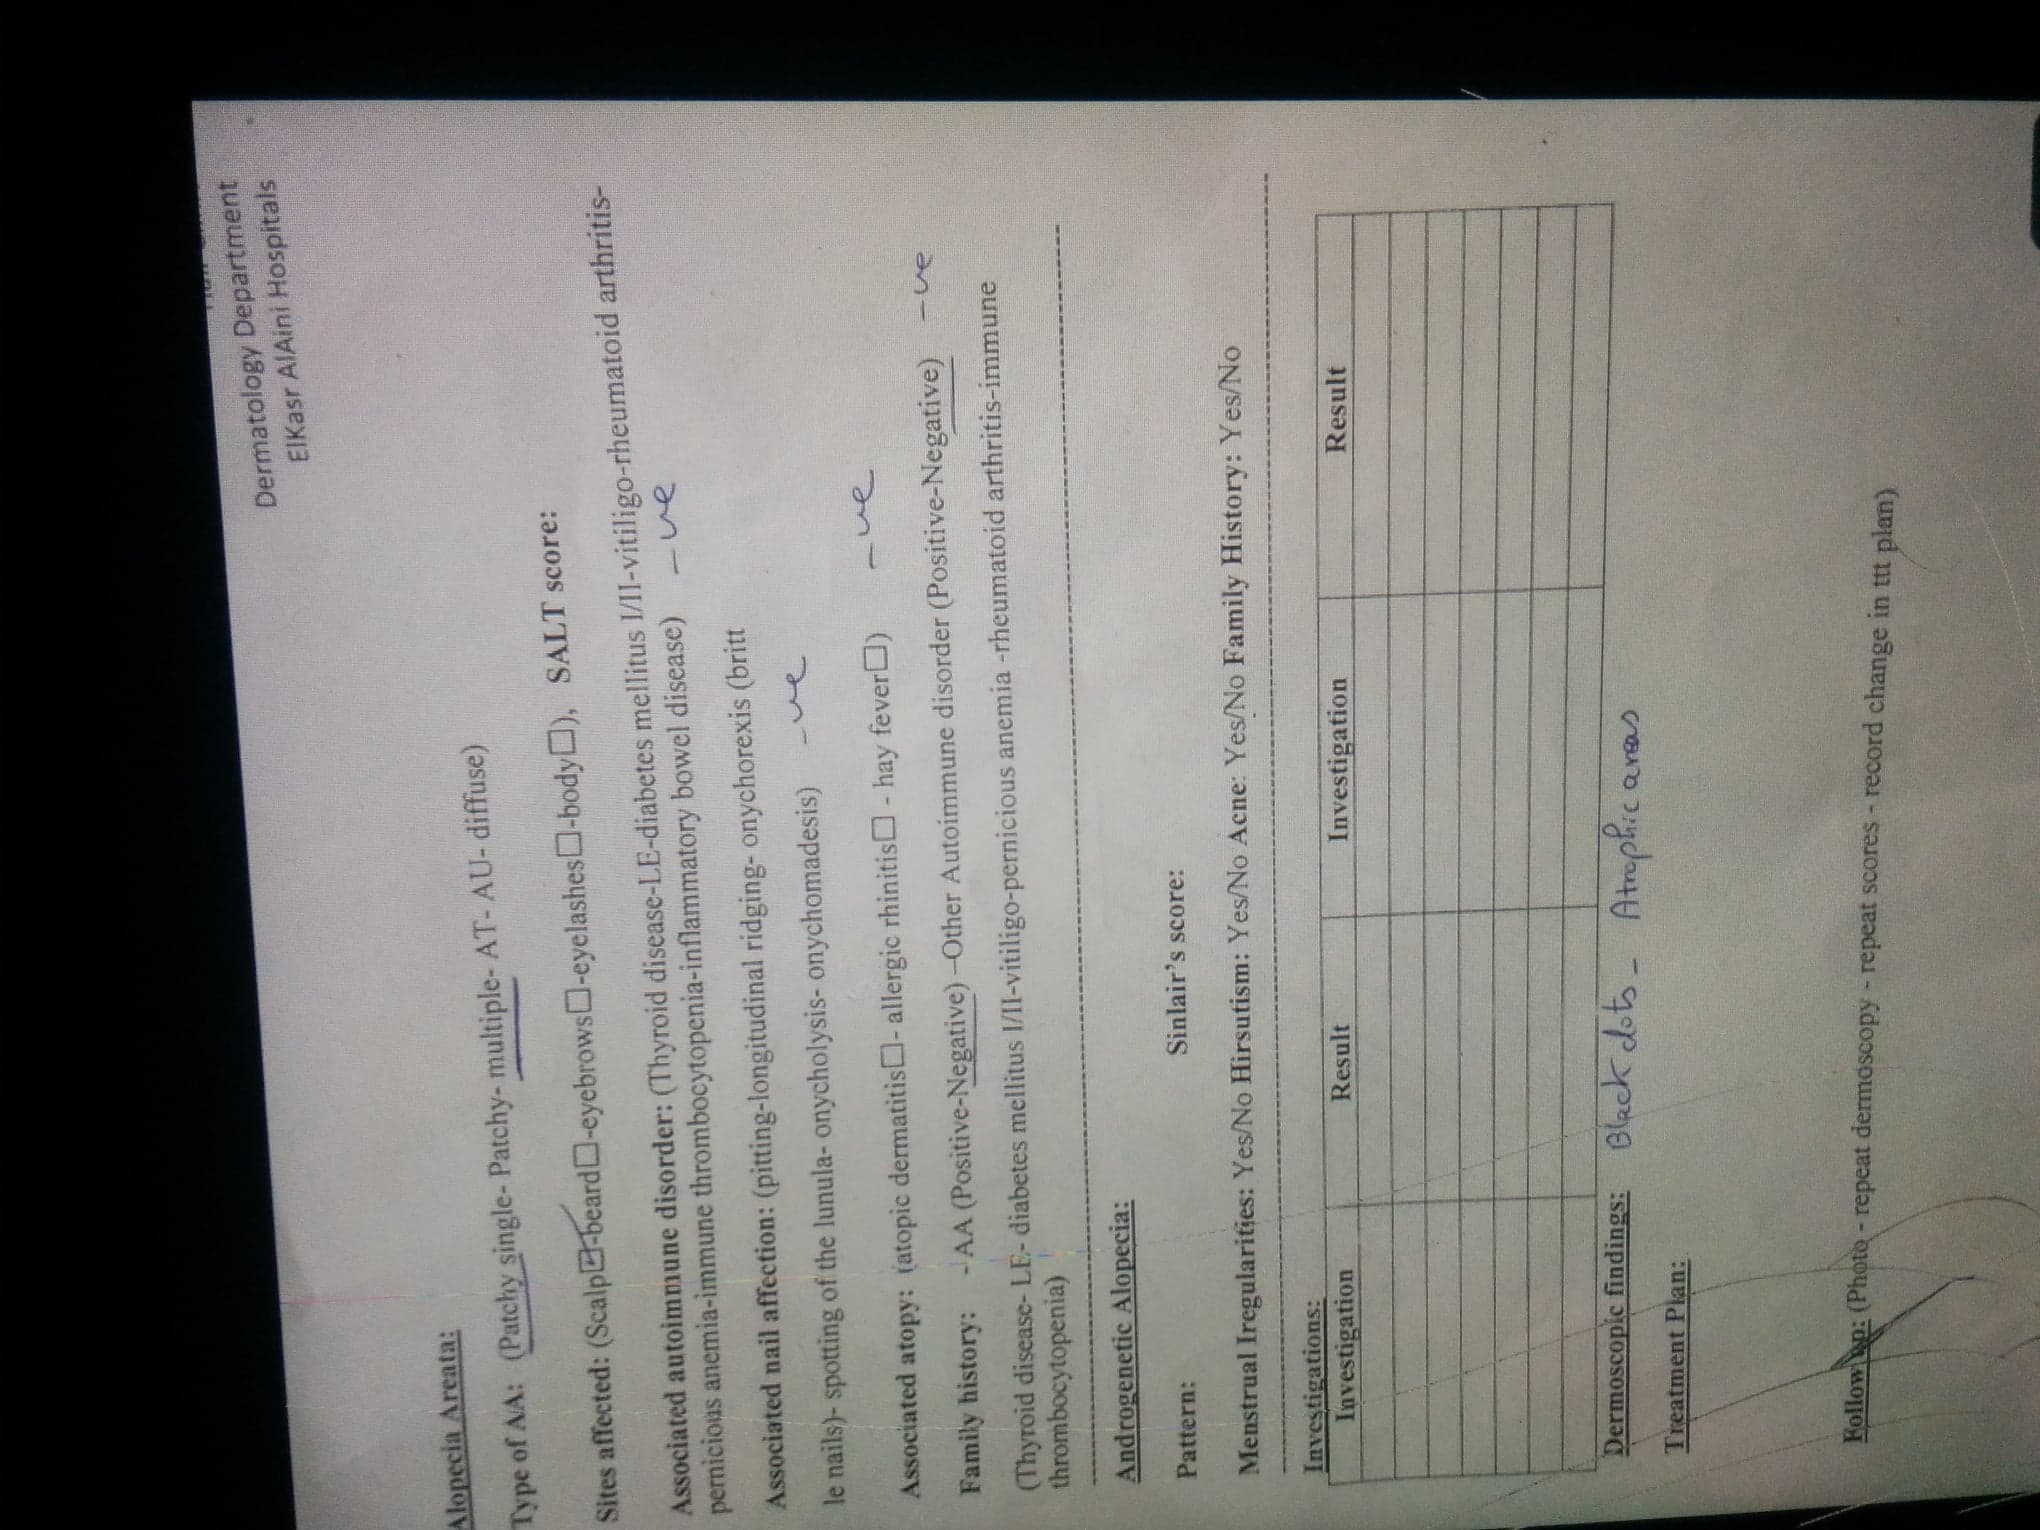 Dermatology Department
ElKasr AlAini Hospitals
Alopecia Areata:
Type of AA: (Patchy single- Patchy- multiple- AT- AU- diffuse)
Sites affected: (Scalp☑-beard☐-eyebrows☐-eyelashes☐-body☐), SALT score:
Associated autoimmune disorder: (Thyroid disease-LE-diabetes mellitus I/II-vitiligo-rheumatoid arthritis-
pernicious anemia-immune thrombocytopenia-inflammatory bowel disease) -ve
Associated nail affection: (pitting-longitudinal ridging- onychorexis (britt
le nails)- spotting of the lunula- onycholysis- onychomadesis) -ve
Associated atopy: (atopic dermatitis☐- allergic rhinitis☐ - hay fever☐) -ve
Family history: - AA (Positive-Negative) –Other Autoimmune disorder (Positive-Negative) -ve
(Thyroid disease- LE- diabetes mellitus I/II-vitiligo-pernicious anemia -rheumatoid arthritis-immune
thrombocytopenia)
Androgenetic Alopecia:
Pattern: Sinlair's score:
Menstrual Iregularities: Yes/No Hirsutism: Yes/No Acne: Yes/No Family History: Yes/No
Investigations:
Investigation Result Investigation Result
Dermoscopic findings: Black dots - Atrophic areas
Treatment Plan:
Follow up: (Photo - repeat dermoscopy - repeat scores - record change in ttt plan)